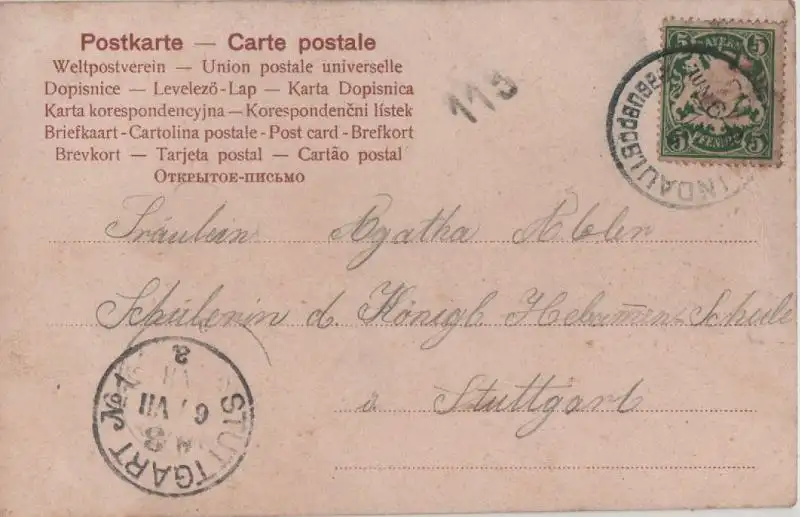 Postkarte — Carte postale
Weltpostverein — Union postale universelle
Dopisnice — Levelező-Lap — Karta Dopisnica
Karta korespondencyjna — Korespondenčni listek
Briefkaart - Cartolina postale - Post card - Brefkort
Brevkort — Tarjeta postal — Cartão postal
Открытое-письмо
115
5 BAYERN 5
5 PFENNIG 5
LINDAU i. Bodensee
JUN
Fräulein Agatha
Schülerin d. Königl. Hebam̅en-Schule
Stuttgart
STUTTGART No. 1
a
VII